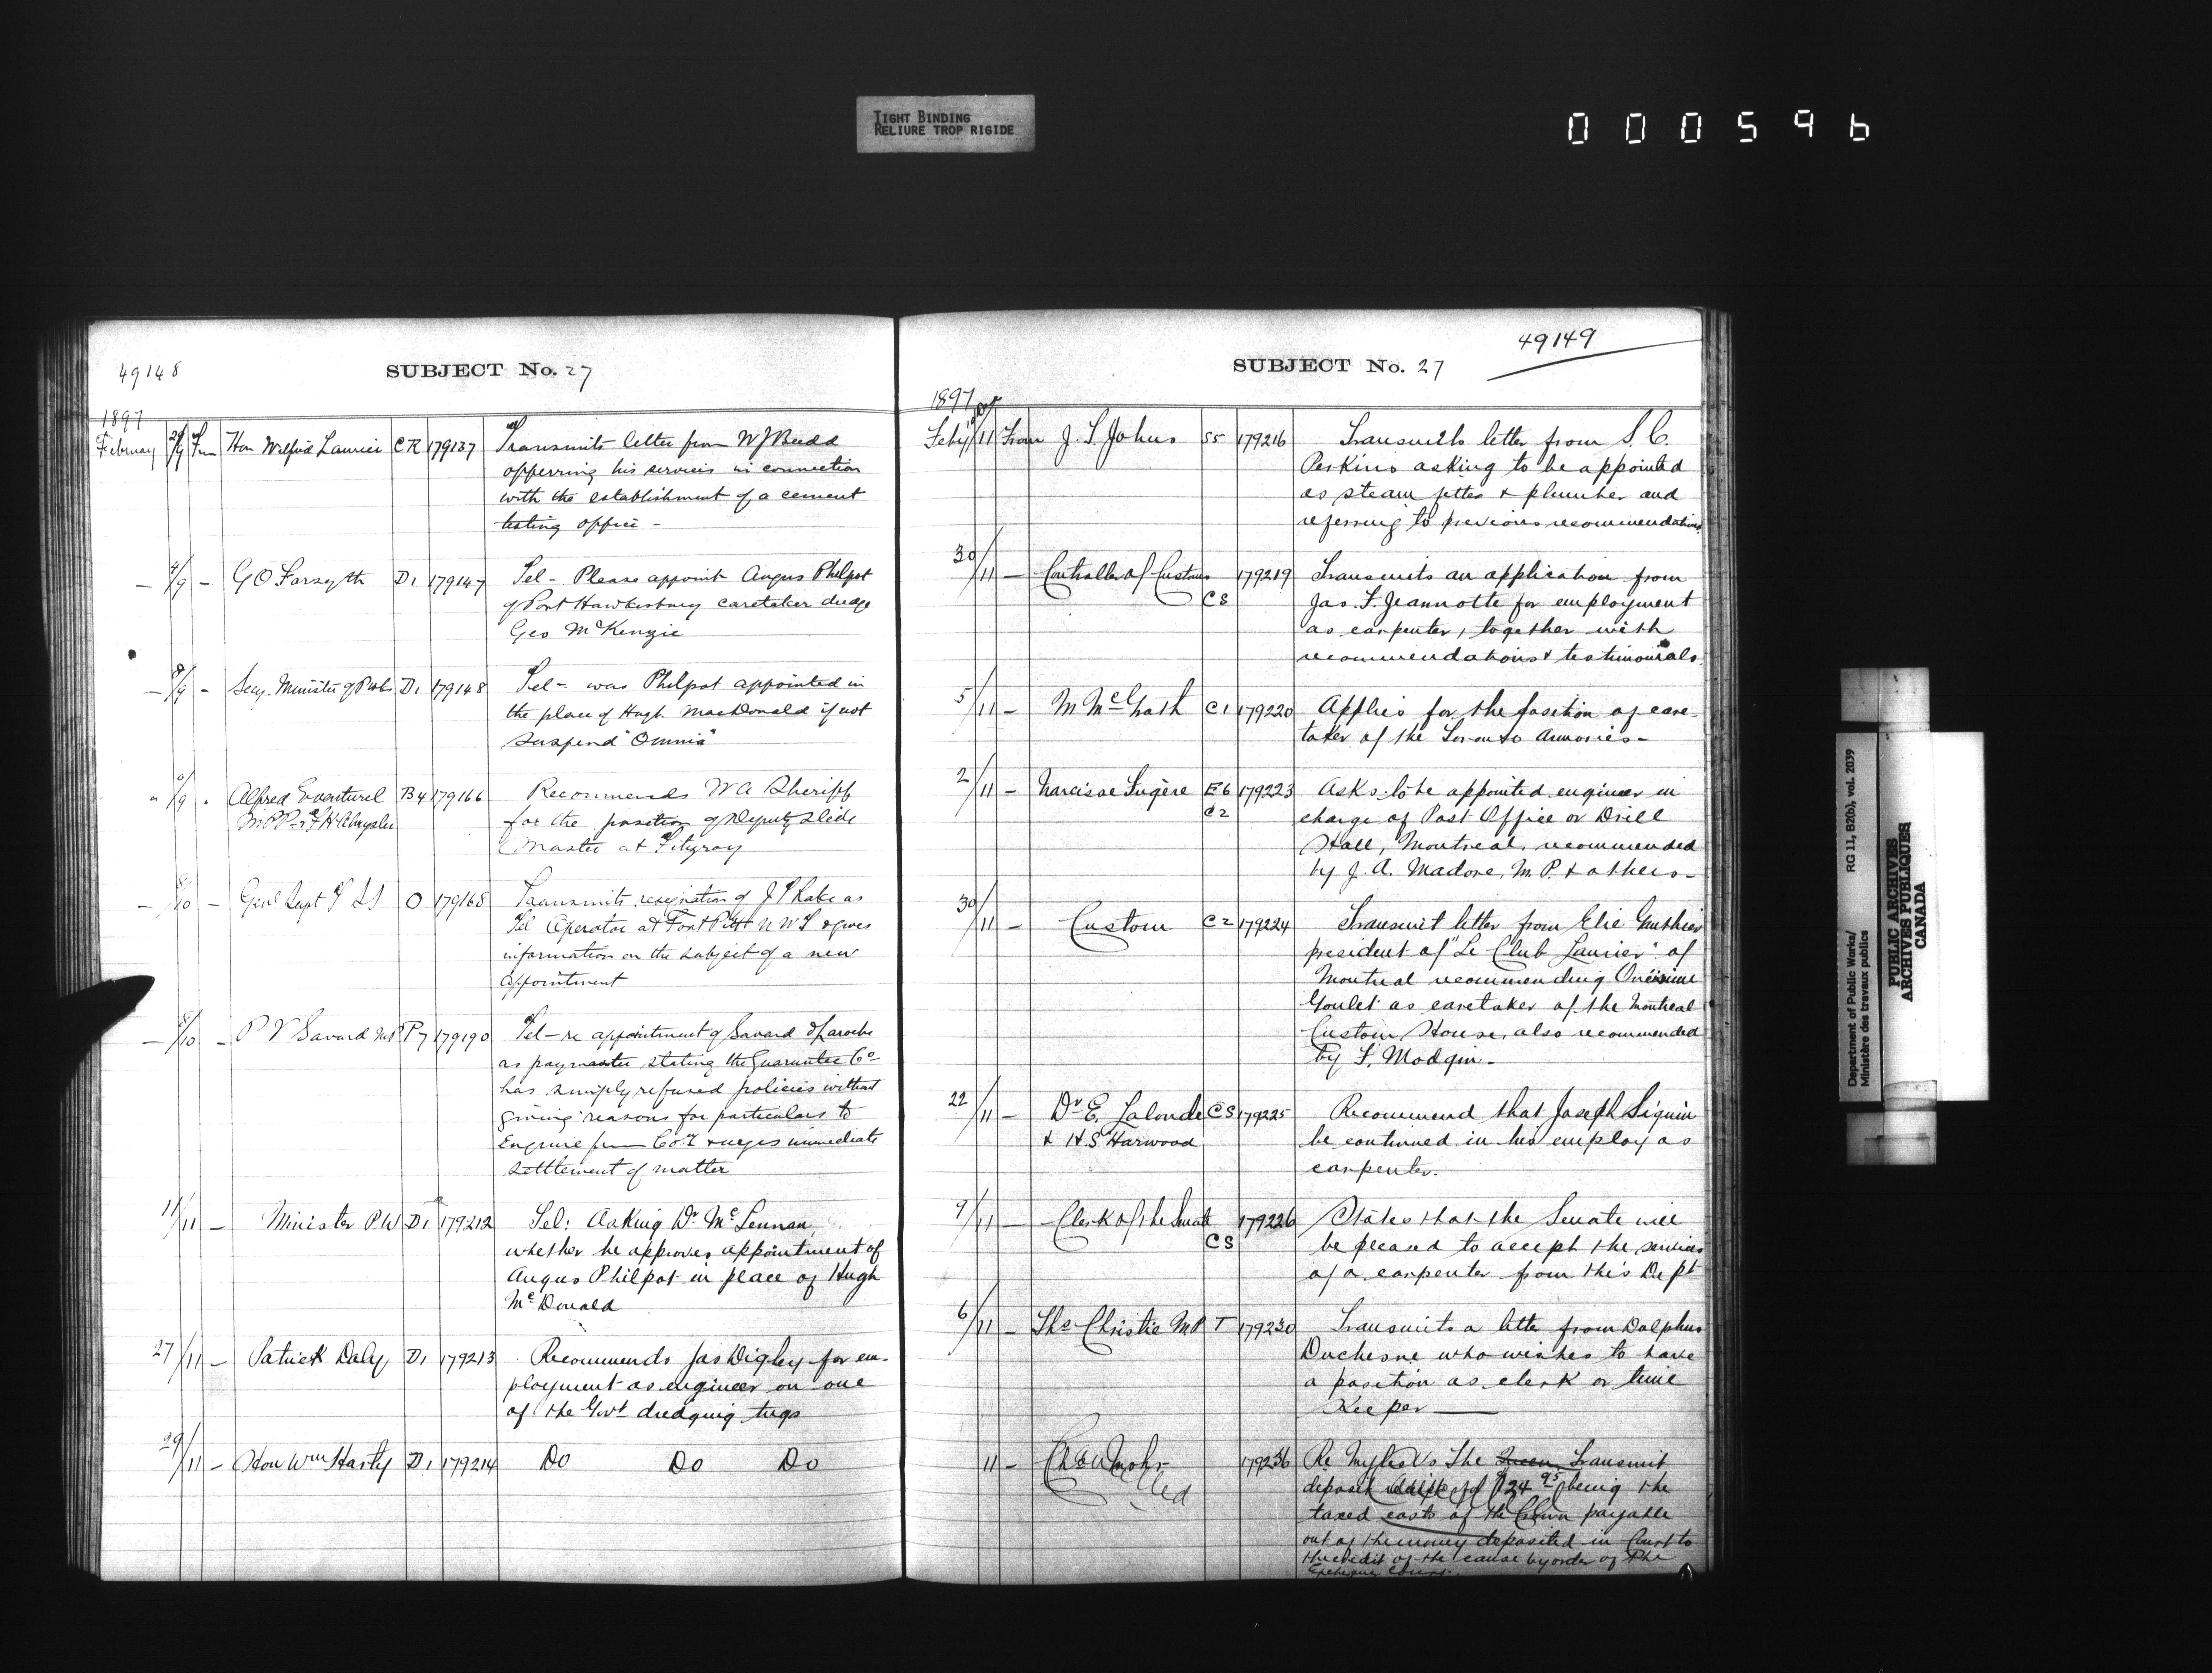 TIGHT BINDING
RELIURE TROP RIGIDE
000596
49148
SUBJECT No. 27
1897
February 9 Fm Hon Wilfrid Laurier CR 179137 Transmits letter from W J
offerring his services in connection
with the establishment of a cement
testing office -
— 4/9 — G O Forsyth D1 179147 Tel - Please appoint Angus Philpot
of Port Hawkesbury caretaker dredge
Geo McKenzie
— 9/9 - Secy. Minister of Pub D1 179148 Tel - was Philpot appointed in
the place of Hugh MacDonald if not
suspend "Omnia"
" /9 " Alfred Evanturel B4 179166 Recommends W A Sheriff
M.P.P. & F H Chrysler for the position of Deputy Slide
Master at Fitzroy
— /10 — Genl Supt O 179168 Transmits resignation of J P as
Tel Operator at Fort Pitt N W T & gives
information on the subject of a new
appointment
— /10 — P V Savard MP P7 179190 Tel - re appointment of Savard &
as paymaster stating the Guarantee Co
has simply refused policies without
giving reasons for particulars to
Enquire from & urges immediate
settlement of matter
11/11 — Minister P.W D1 179212 Tel: Asking Dr McLennan
whether he approves appointment of
Angus Philpot in place of Hugh
McDonald
27/11 — Patrick Daly D1 179213 Recommends Jas Digley for em-
ployment as engineer on one
of the Govt dredging tugs
29/11 — Hon Wm Harty D1 179214 Do Do Do
49149
SUBJECT No. 27
1897
Feby 11 From J. S. Johns S5 179216 Transmits letter from S. C.
Perkins asking to be appointed
as steam fitter & plumber and
referring to previous recommendations
30/11 — Controller of Customs 179219 Transmits an application from
CS Jas. T. Jeannotte for employment
as carpenter, together with
recommendations & testimonials.
5/11 — M McGrath C1 179220 Applies for the position of care-
taker of the Toronto Armories -
2/11 — Narcisse Lugère E6 179223 Asks to be appointed engineer in
C2 charge of Post Office or Drill
Hall, Montreal, recommended
by J. A. Madore, M.P. & others -
30/11 — Custom C2 179224 Transmit letter from Elie
president of "Le Club Laurier" of
Montreal recommending Onésime
Goulet as caretaker of the Montreal
Custom House, also recommended
by F. Modgin -
22/11 — Dr E. Lalonde CS 179225 Recommend that Joseph Siguin
& H.S Harwood be continued in his employ as
carpenter.
9/11 — Clerk of the Senate 179226 States that the Senate will
CS be pleased to accept the services
of a carpenter from this Dept
6/11 — Ths Christie MP T 179230 Transmits a letter from Dolphus
Duchesne who wishes to have
a position as clerk or time
Keeper —
11 — 179236 Re Myles Vs The Queen. Transmit
deposit of $124 95 being the
taxed costs of the Crown payable
out of the money deposited in Court to
the credit of the cause by order of the
Exchequer Court.
Department of Public Works/
Ministère des travaux publics
RG 11, B2(b), vol. 2039
PUBLIC ARCHIVES
ARCHIVES PUBLIQUES
CANADA